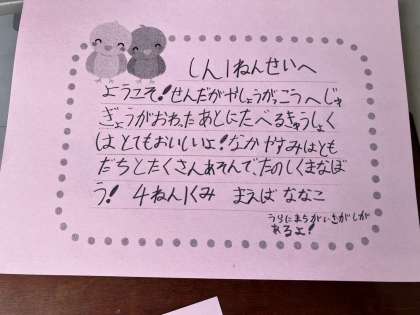 しん1ねんせいへ
ようこそ!せんだがやしょうがっこうへじゅ
ぎょうがおわったあとにたべるきゅうしょく
はとてもおいしいよ!なかやすみはとも
だちとたくさんあそんで、たのしくまなぼ
う! 4ねん1くみ まえば ななこ
うらにまちがいさがしが
あるよ!